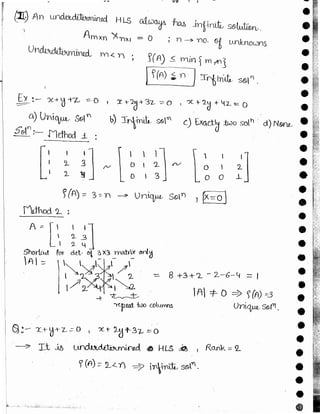 (II) An underdetermined HLS always has infinite solution.
Amxn Xnx1 = 0 ; n → no. of unknowns
Underdetermined m < n ; ρ(A) ≤ min{m,n}
ρ(A) ≤ n Infinite solⁿ.
Ex :- x+y+z = 0 , x+2y+3z = 0 , x+2y+4z = 0
a) Unique Solⁿ b) Infinite solⁿ c) Exactly two solⁿ d) None.
Solⁿ:- Method 1 :
[1 1 1] [1 1 1] [1 1 1]
[1 2 3] ~ [0 1 2] ~ [0 1 2]
[1 2 4] [0 1 3] [0 0 1]
ρ(A) = 3 = n → Unique Solⁿ , X=0
Method 2 :
A = [1 1 1]
[1 2 3]
[1 2 4]
Shortcut for det. of 3x3 matrix only
|A| = 1 1 1 1 1
1 2 3 1 2 = 8+3+2-2-6-4 = 1
1 2 4 1 2
repeat two columns
|A| ≠ 0 ⇒ ρ(A) = 3
Unique Solⁿ.
Q:- x+y+z = 0 , x+2y+3z = 0
→ It is underdetermined HLS , Rank = 2
ρ(A) = 2 < n ⇒ infinite solⁿ.